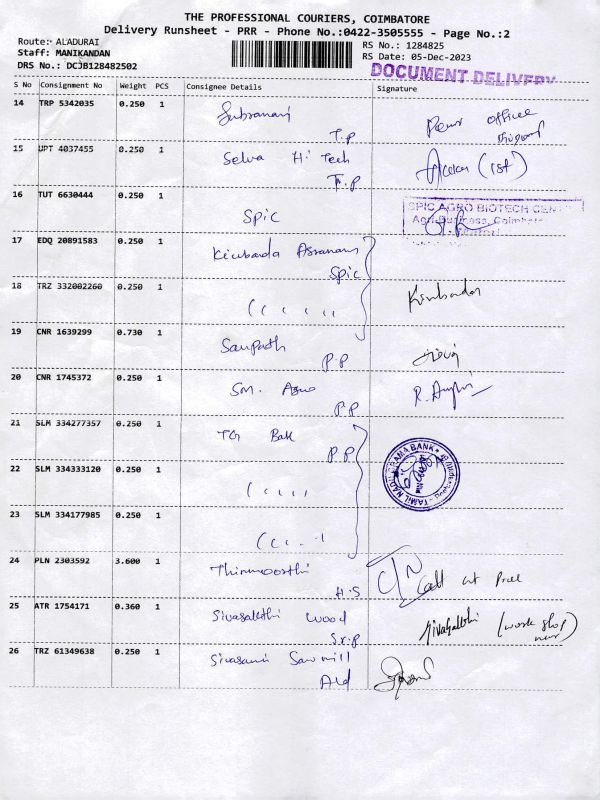 THE PROFESSIONAL COURIERS, COIMBATORE
Delivery Runsheet - PRR - Phone No.:0422-3505555 - Page No.:2
Route: ALADURAI
RS No.: 1284825
Staff: MANIKANDAN
RS Date: 05-Dec-2023
DRS No.: DCJB128482502
DOCUMENT DELIVERY
S No Consignment No Weight PCS Consignee Details Signature
14 TRP 5342035 0.250 1
T.P
15 UPT 4037455 0.250 1 Selva Hi Tech
T.P
16 TUT 6630444 0.250 1 Spic
SPIC AGRO BIOTECH CEN
17 EDQ 20891583 0.250 1
Spic
18 TRZ 332002260 0.250 1
19 CNR 1639299 0.730 1 Sampath
P.P
20 CNR 1745372 0.250 1 Sm. Agro
P.P
21 SLM 334277357 0.250 1 TG Bak
P.P
TAMIL NADU GRAMA BANK
22 SLM 334333120 0.250 1
23 SLM 334177985 0.250 1
24 PLN 2303592 3.600 1 Thirumoorthi
H.S
C/N
25 ATR 1754171 0.360 1 Sivasakthi Wood
S.r.p
Sivasakthi (work shop
26 TRZ 61349638 0.250 1 Sivasami Sawmill
Ald